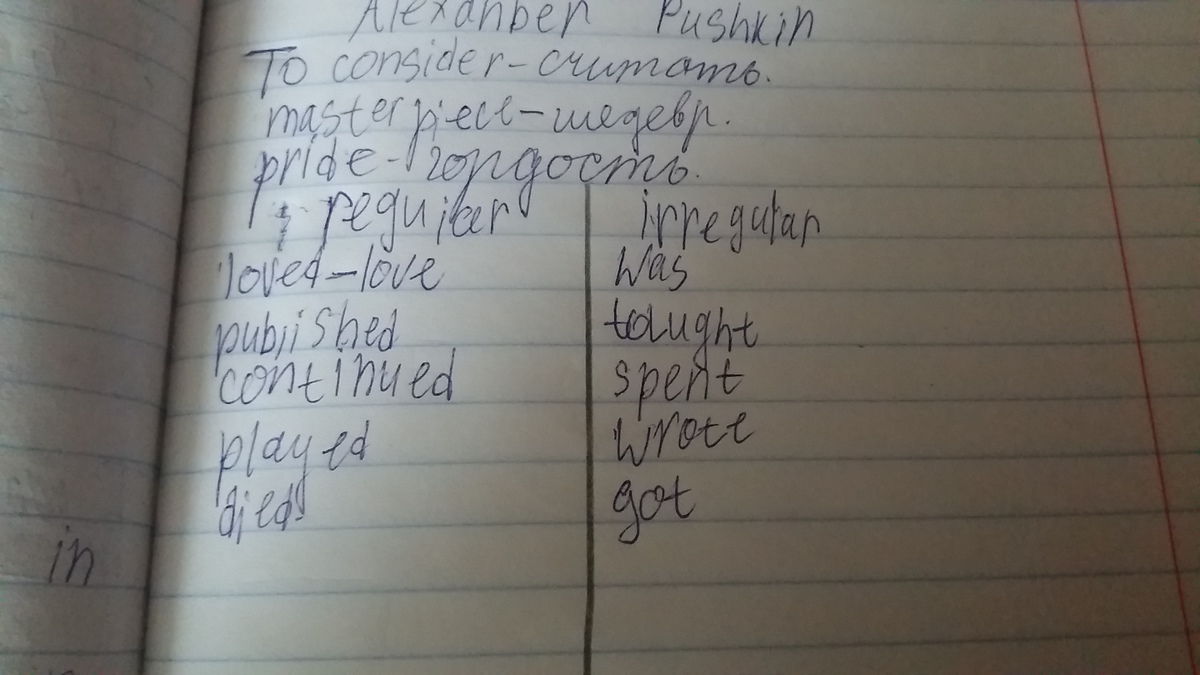 Alexanber Pushkin
To consider - считать.
masterpiece - шедевр.
pride - гордость.
regular irregular
loved - love was
published taught
continued spent
played wrote
died got
in